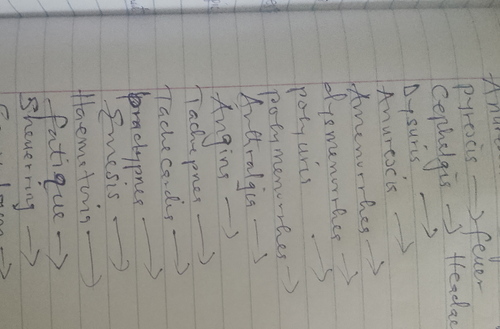 pyrexis → fever
Cephelgis → Headac
Dysuris →
Anurexis →
Amenorrhea →
dysmenorrhea →
polyuris →
Polymenorrhea →
Arthralgia →
Angins →
Tachypnea →
Tachecardis →
bradypnea →
Emesis →
Haematuria →
fatique →
Shevering →